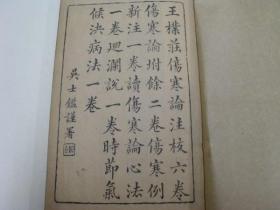 王樸莊傷寒論注校六卷
傷寒論坿餘二卷傷寒例
新注一卷讀傷寒論心法
一卷迴瀾說一卷時節氣
候決病法一卷
吳士鑑謹署